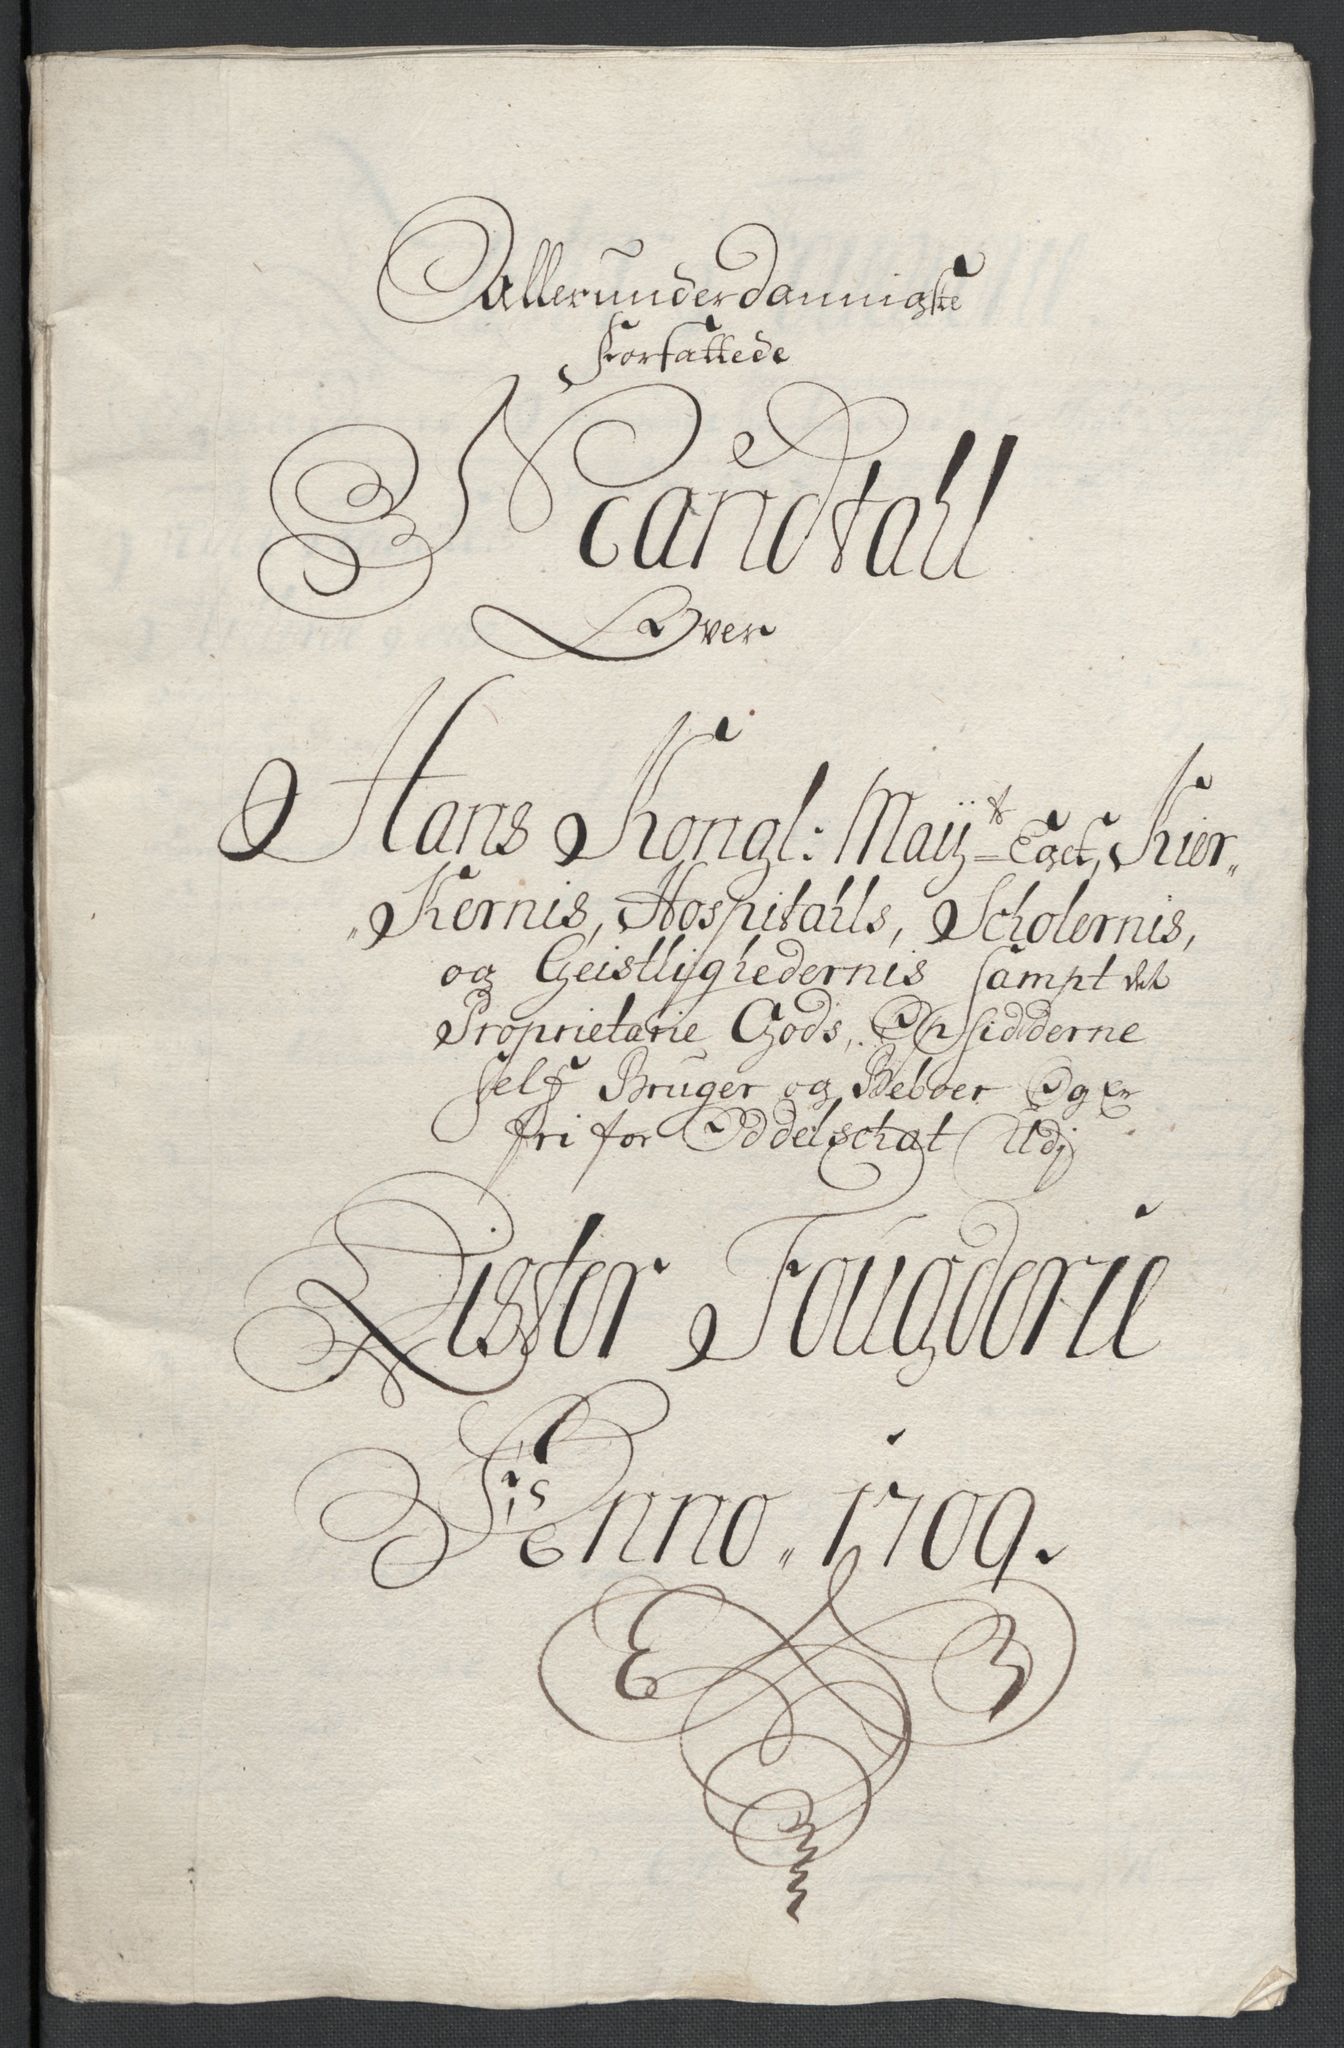 Allerunderdannigste
Forfattede
Mandtall
Over
Hans Kongl: Maÿts Eget, Kier„
„Kernis, Hospitahls, Scholernis,
og Geistlighedernis sampt det
Proprietarie Gods, Opsidderne
self Bruger og Beboer Og er
fri for Oddelschat Udj
Lister Fougderie
Anno„ 1709.